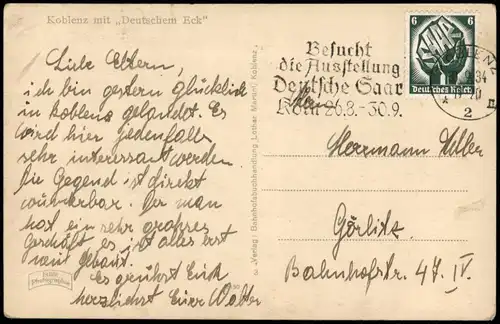 Koblenz mit „Deutschem Eck“
Liebe Eltern,
ich bin gestern glücklich
in Koblenz gelandet. Es
wird hier jedenfalls
sehr interessant werden.
Die Gegend ist direkt
wunderbar. Der man
hat ein sehr großes
Geschäft es ist alles erst
neu gebaut.
Es grüßt Euch
herzlichst Euer Walter
Echte Photographie
Verlag: Bahnhofsbuchhandlung Lothar Koblenz
Besucht
die Ausstellung
Deutsche Saar
Köln 26.8.-30.9.
6 6
Deutsches Reich
34
2
Herrn
Görlitz
Bahnhofstr. 47. IV.